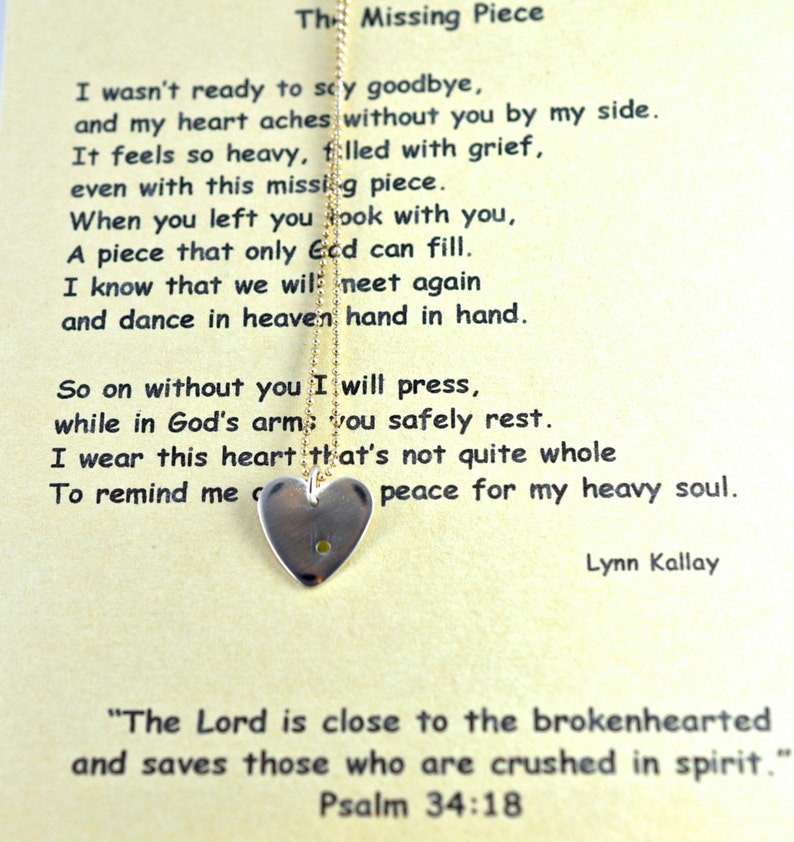 The Missing Piece
I wasn't ready to say goodbye,
and my heart aches without you by my side.
It feels so heavy, filled with grief,
even with this missing piece.
When you left you took with you,
A piece that only God can fill.
I know that we will meet again
and dance in heaven hand in hand.
So on without you I will press,
while in God's arms you safely rest.
I wear this heart that's not quite whole
To remind me peace for my heavy soul.
Lynn Kallay
“The Lord is close to the brokenhearted
and saves those who are crushed in spirit.”
Psalm 34:18